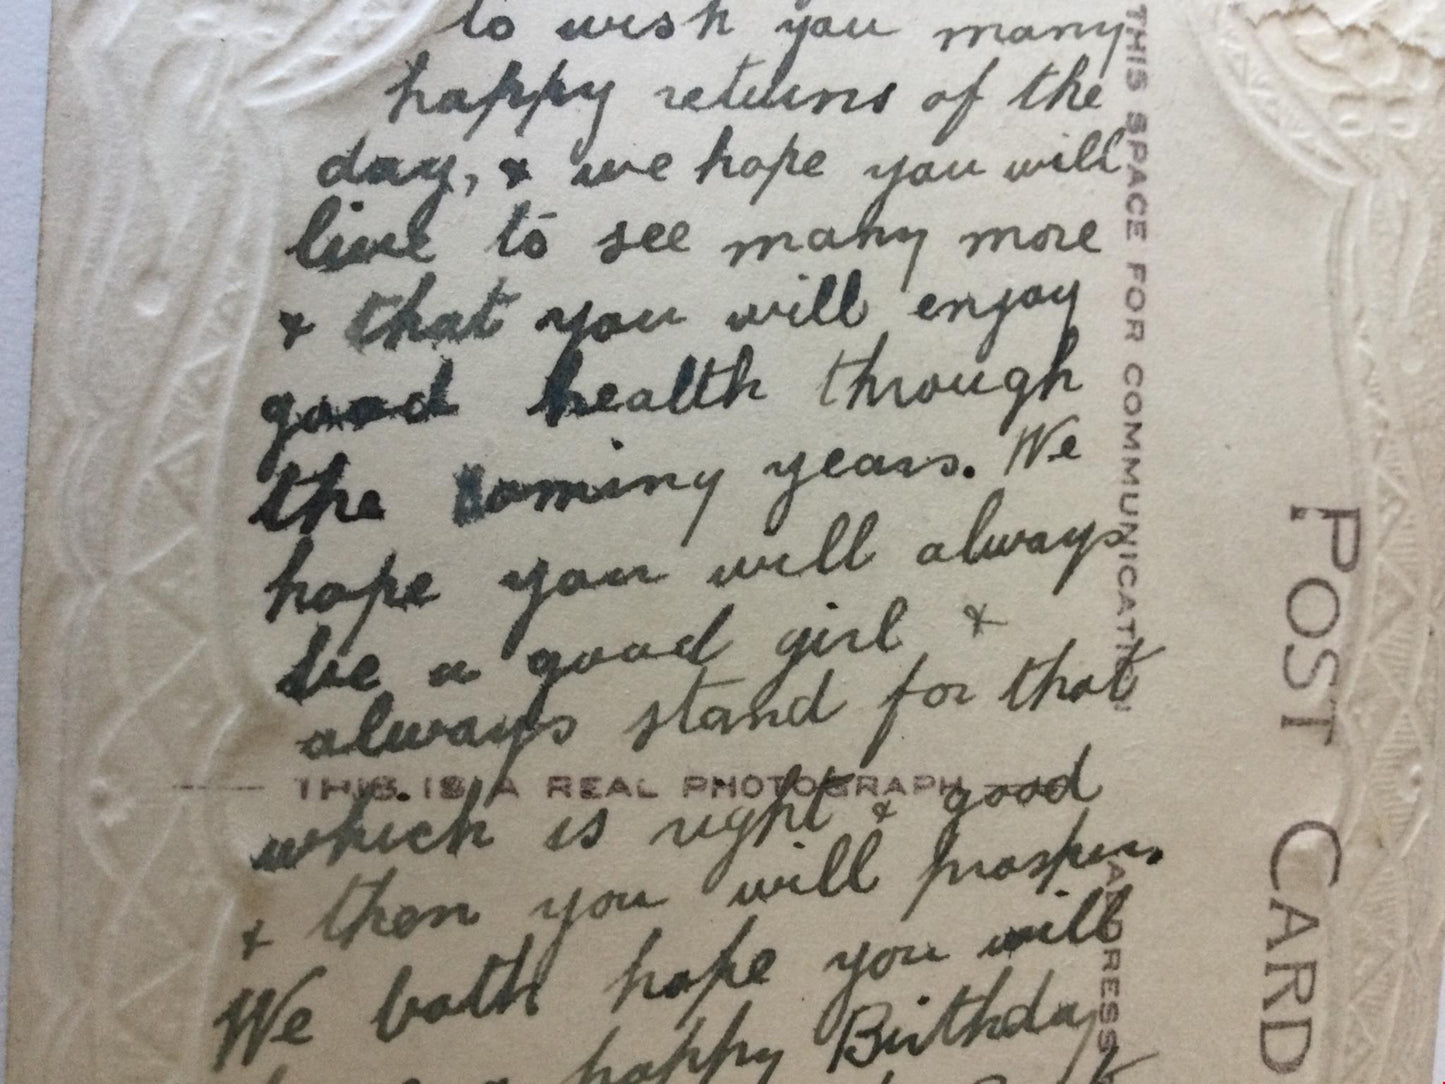 to wish you many
happy returns of the
day, & we hope you will
live to see many more
& that you will enjoy
good health through
the coming years. We
hope you will always
be a good girl &
always stand for that
THIS IS A REAL PHOTOGRAPH
which is right & good
& then you will prosper.
We both hope you will
happy Birthday
THIS SPACE FOR COMMUNICATION
ADDRESS
POST CARD